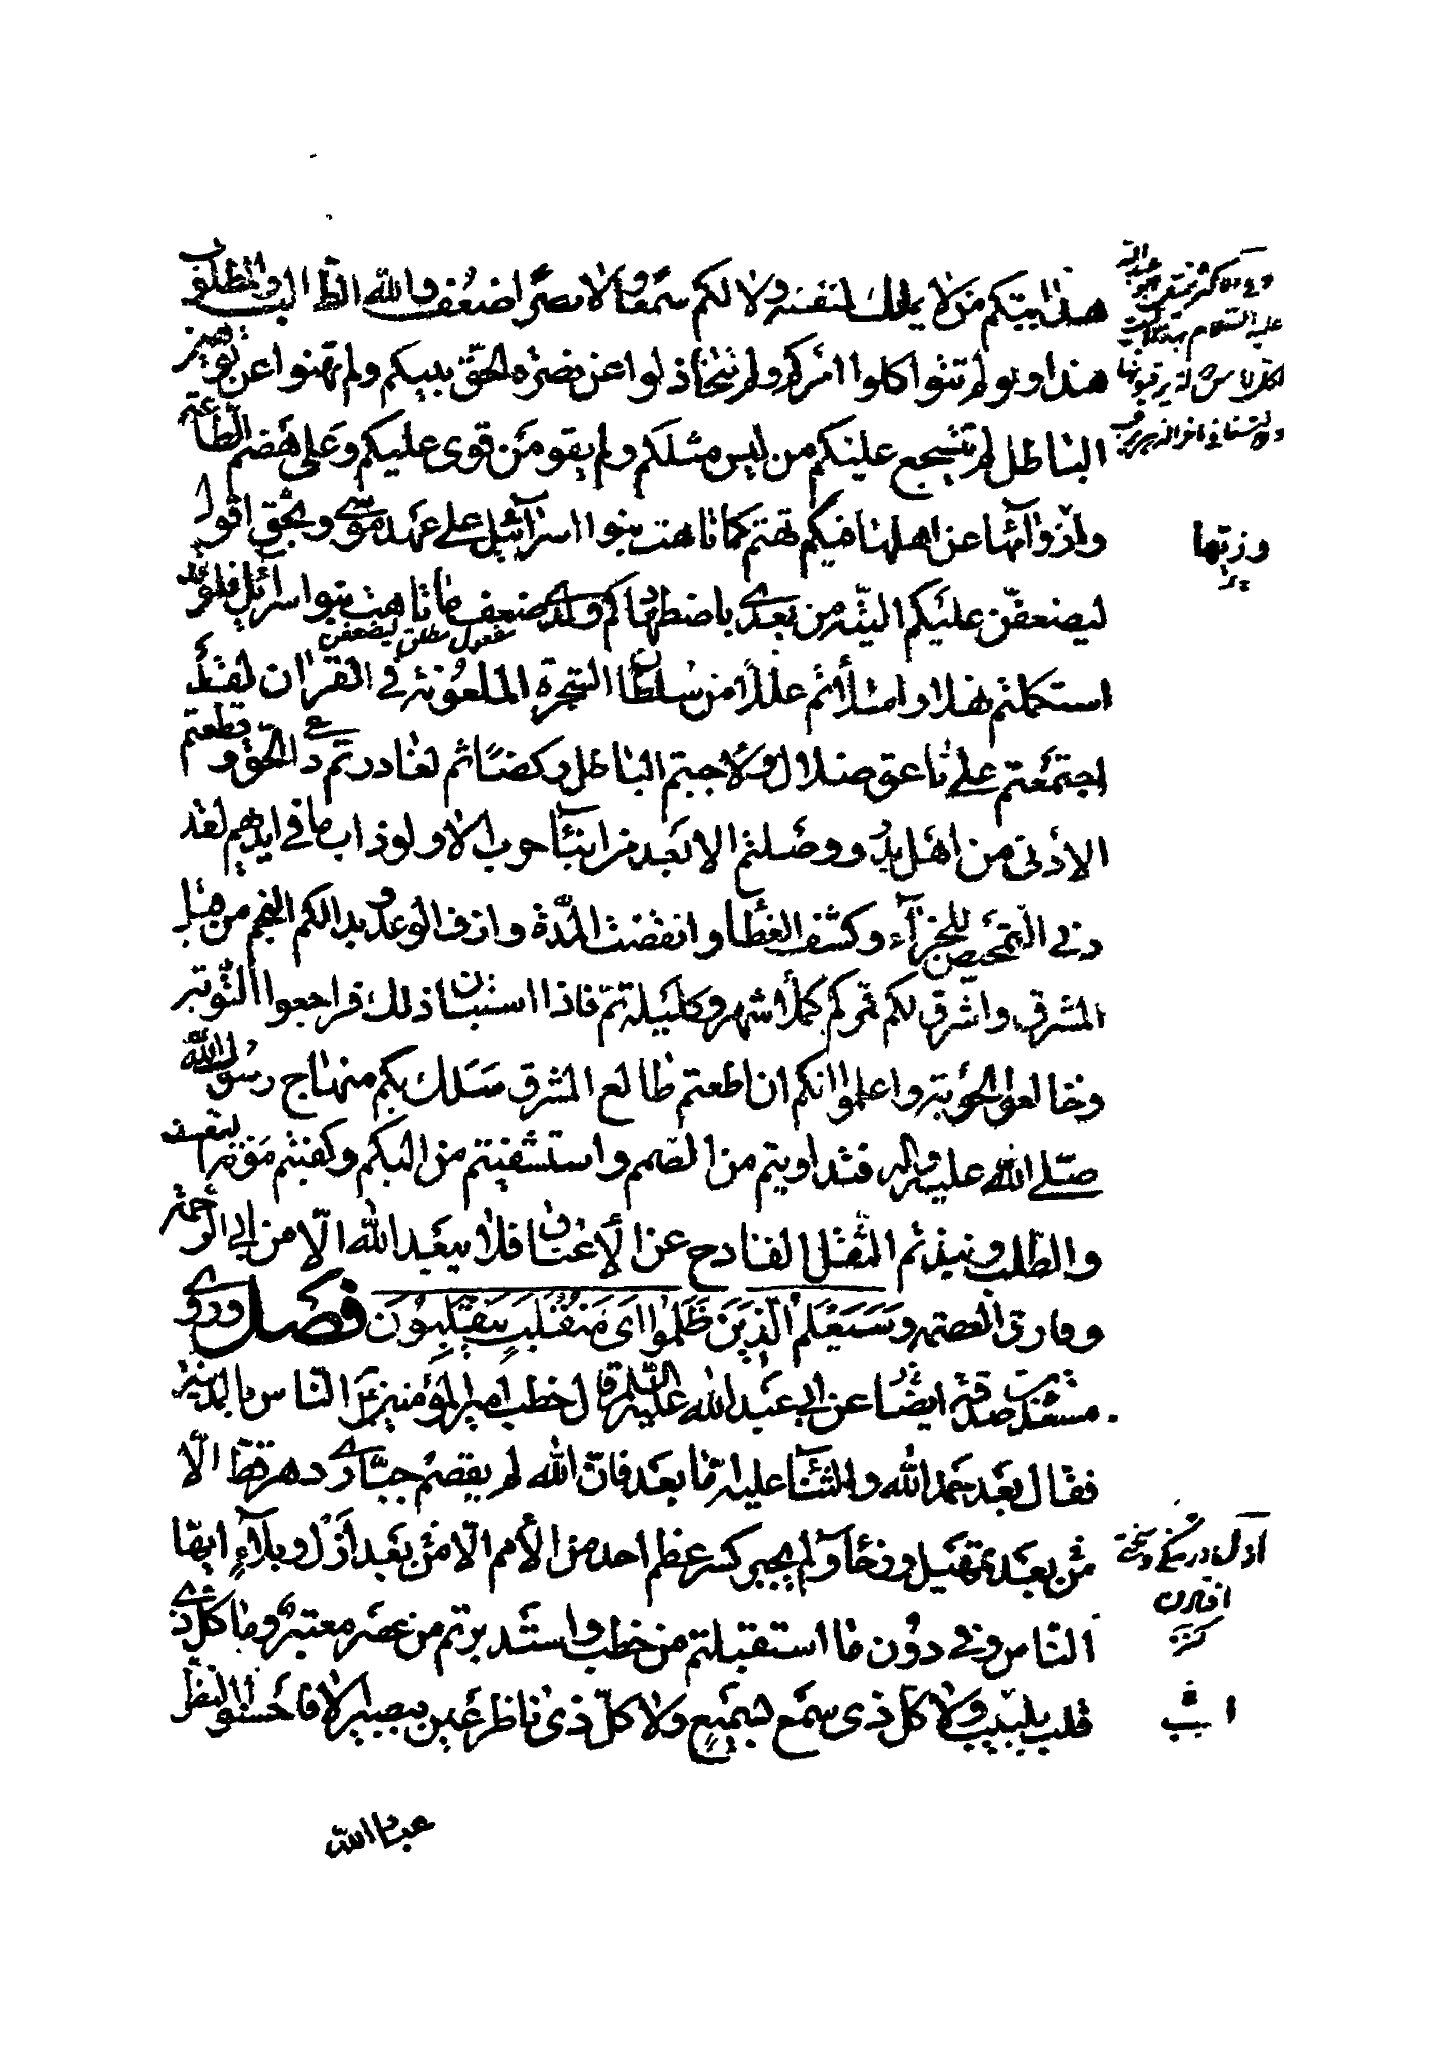 هذا بيتكم من لا يملك لنفسه ولا لكم سمعا ولا بصرا ضعف والله الطالب والمطلوب
هذا ولو لم تتواكلوا امركم ولم تتخاذلوا عن نصرة الحق بينكم ولم تهنوا عن توهين
الباطل لم يتشجع عليكم من ليس مثلكم ولم يقو من قوى عليكم وعلى هضم الطاعة
وازوائها عن اهلها فيكم تهتم كما تاهت بنوا اسرائيل على عهد موسى وبحق اقول
ليضعفن عليكم التيه من بعدى باضطهادكم ولدى ضعف ما تاهت بنوا اسرائيل فلو قد
مفعول مطلق ليضعفن
استكملتم نهلا وامتلأتم عللا من سلطان الشجرة الملعونة فى القران لقد
اجتمعتم على ناعق ضلال ولاجبتم الباطل ركضا ثم لغادرتم داعى الحق وقطعتم
الادنى من اهل بدر ووصلتم الابعد من ابناء حرب الا ولو ذاب ما فى ايديهم لقد
دنى التمحيص للجزاء وكشف الغطاء وانقضت المدة وازف الوعد وبدا لكم النجم من قبل
المشرق واشرق لكم قمركم كملأ شهر وكليلة تم فاذا استبان ذلك فراجعوا التوبة
وخالعوا الحوبة واعلموا انكم ان اطعتم طالع المشرق سلك بكم منهاج رسول الله
صلى الله عليه واله فتداويتم من الصمم واستشفيتم من البكم وكفيتم مؤنة التعسف
والطلب ونبذتم الثقل الفادح عن الاعناق فلا يبعد الله الا من ابى الرحمة
وفارق العصمة وسيعلم الذين ظلموا اى منقلب ينقلبون فصل وروى
مسعدة بن صدقة ايضا عن ابى عبد الله عليه السلام قال خطب امير المؤمنين ع الناس بالمدينة
فقال بعد حمد الله والثناء عليه اما بعد فان الله لم يقصم جبارى دهر قط الا
من بعد تمهيل ورخاء ولم يجبر كسر عظم احد من الأمم الا من بعد ازل وبلاء ايها
الناس وفى دون ما استقبلتم من خطب واستدبرتم من عصر معتبر وما كل ذى
قلب بلبيب ولا كل ذى سمع بسميع ولا كل ذى ناظر عين ببصير الا فاحسنوا النظر
عباد الله